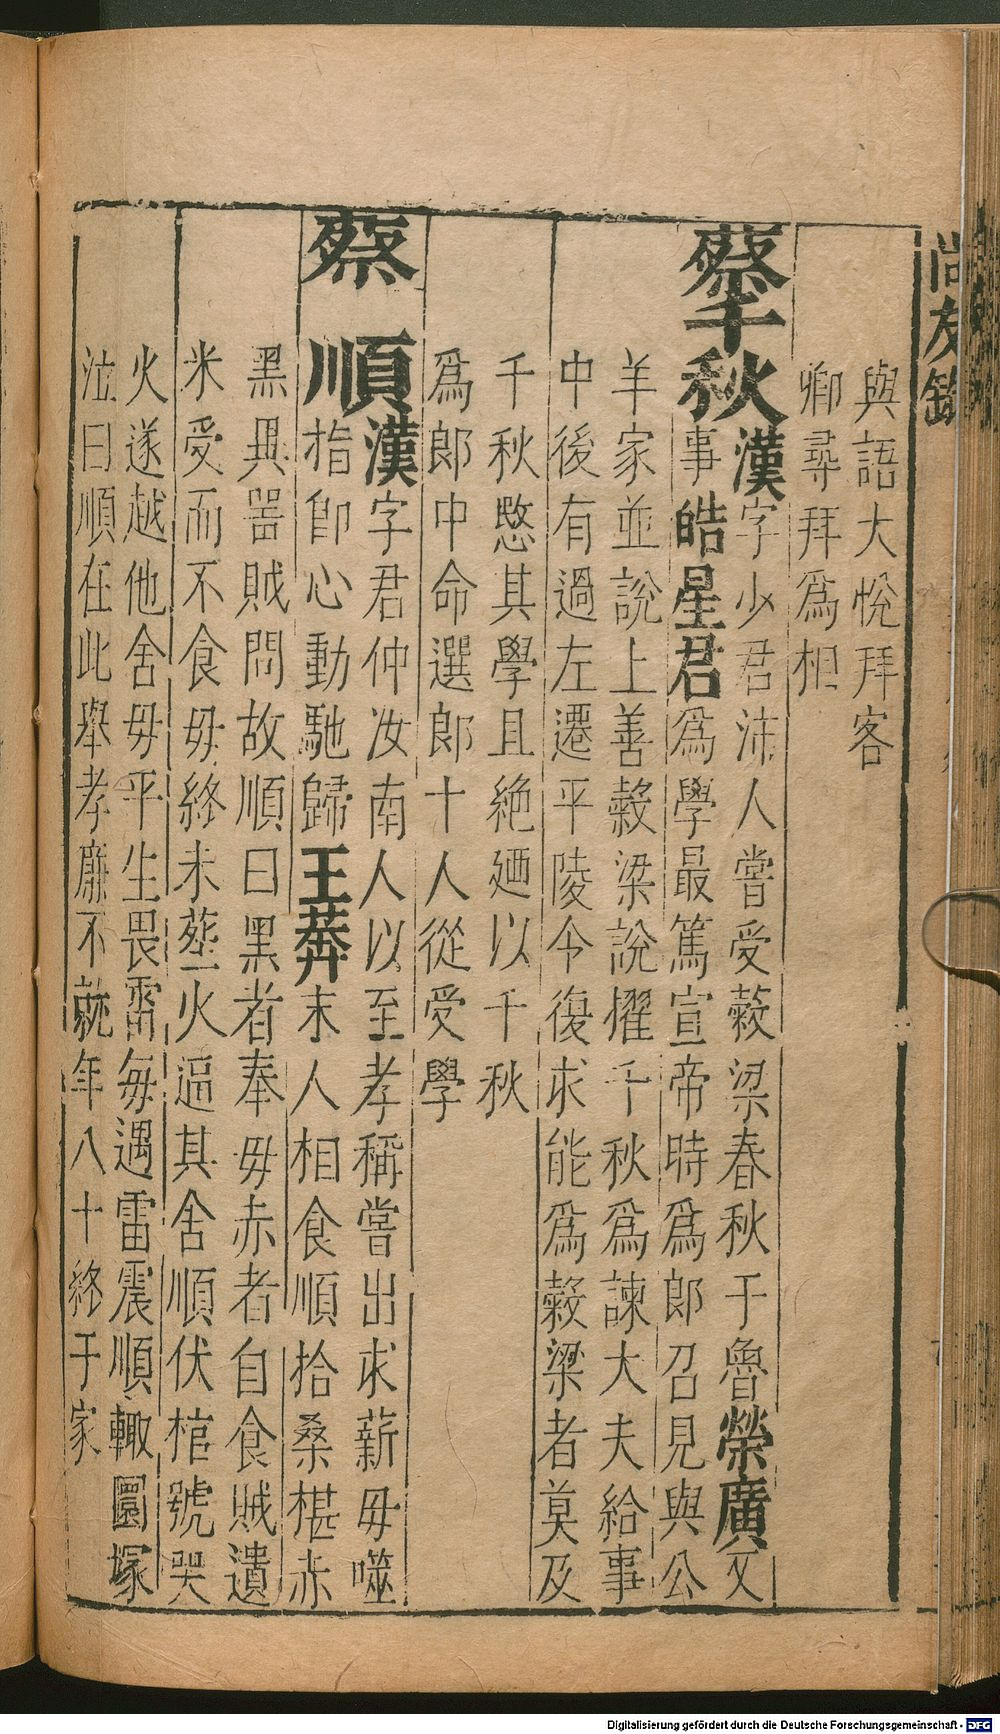 尚友錄
與語大悅拜客
卿尋拜爲相
蔡千秋漢字少君沛人嘗受榖梁春秋于魯榮廣又
事皓星君爲學最篤宣帝時爲郎召見與公
羊家並說上善榖梁說擢千秋爲諫大夫給事
中後有過左遷平陵令復求能爲榖梁者莫及
千秋愍其學且絶廼以千秋
爲郎中命選郎十人從受學
蔡順漢字君仲汝南人以至孝稱嘗出求薪毋噬
指卽心動馳歸王莽末人相食順拾桑椹赤
黑異噐賊問故順曰黑者奉毋赤者自食賊遺
米受而不食毋終未塟火逼其舍順伏棺號哭
火遂越他舍毋平生畏雷每遇雷震順輙圜塚
泣曰順在此舉孝廉不就年八十終于家
Digitalisierung gefördert durch die Deutsche Forschungsgemeinschaft - DFG